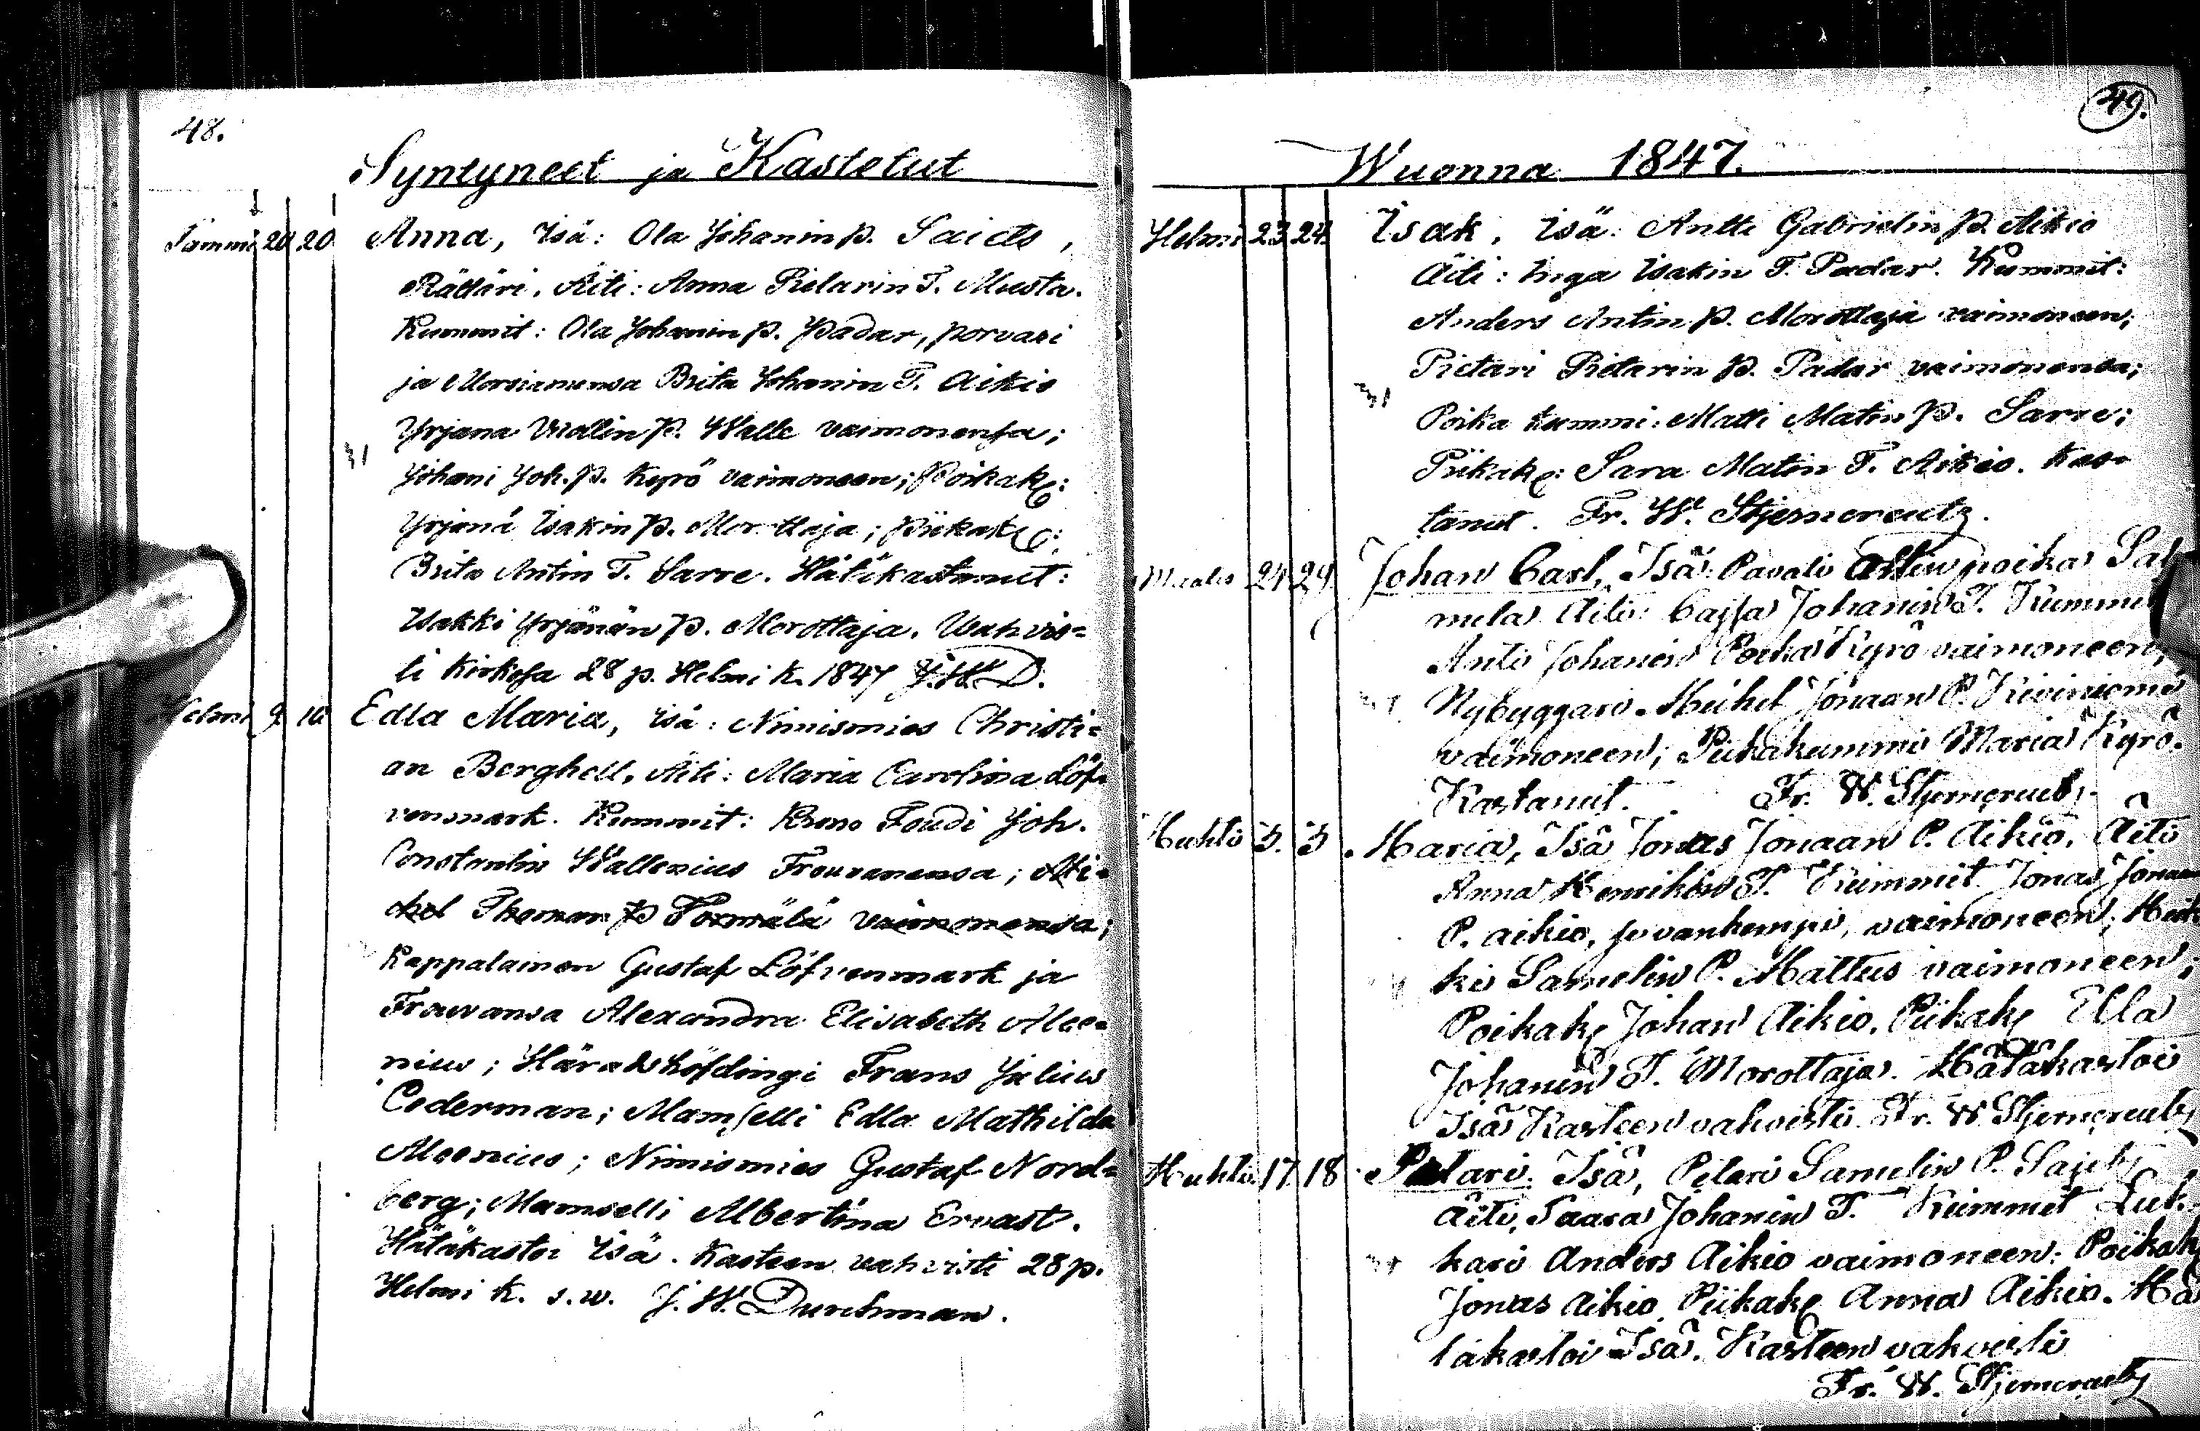 48.
Syntyneet ja Kastetut
Tammi 20 20 Anna, Isä: Ola Johanin p. Saiets,
Rättäri. Äiti: Anna Pietarin T. Musta.
Kummit: Ola Johanin p. Padar, porvari
ja Morsianensa Brita Johanin T. Aikio
Yrjänä Uvallin p. Walle vaimonensa;
Johani Joh. p. Kyrö vaimoneen; Poikak:
Yrjänä Isakin p. Morottaja; Piikak:
Brita Antin T. Sarre. Hätäkastanut:
Isakki Yrjänän p. Morottaja. Wahvis=
ti Kirkosa 28 p. Helmi K. 1847 J. W. D.
Helmi 9. 10 Edla Maria, isä: Nimismies Christi=
an Berghell, Äiti: Maria Carolina Löf=
venmark. Kummit: Kruno Foudi Joh.
Constantin Wallenius Frouvanensa; Mi=
chel Thoman p Törmälä vaimonensa;
Kappalainen Gustaf Löfvenmark ja
Frouvansa Alexandra Elisabeth Alce=
nius; Häradshöfdingi Frans Julius
Cederman; Mamselli Edla Mathilda
Alcenius; Nimismies Gustaf Nord=
berg; Mamselli Albertina Ervast.
Hätäkastoi Isä. Kasteen vahvisti 28 p.
Helmi K. s. w. J. W. Durchman.
49.
Wuonna 1847.
Helmi 23 24 Isak, isä: Antti Gabrielin p. Aikio
Äiti: Inga Isakin T. Padar. Kummit:
Anders Antin p. Morottaja vaimoneen;
Pietari Pietarin p. Padar vaimonensa;
Poika kummi: Matti Matin p. Sarre;
Piikak: Sara Matin T. Aikio. Kas=
tanut. Fr. W. Stjerncreutz.
Maalis 24 29 Johan Carl, Isä: Pavali Antin poika Sal
mela Äiti: Cajsa Johanin T. Kummit
Anti Johanin Poika Kyrö vaimoneen,
Nybyggari Meihel Jonaan P. Kiviniemi
vaimoneen; Piikakummi Maria Kyrö.
Kastanut. Fr. W. Stjerncreutz
Huhti 3. 3 Maria, Isä Jonas Jonaan P. Aikio, Äiti
Anna Henrikin T. Kummit Jonas Jonaan
P. aikio, ja vanhempi, vaimoneen, Heik
ki Samelin P. Mattus vaimoneen;
Poikak Johan Aikio, Piikak Ella
Johanin T. Morottaja. Hätäkastoi
Isä Kasteen vahvisti Fr. W. Stjerncreutz
Huhti 17 18 Petari. Isä, Petari Samelin P. Sajets
Äiti, Saara Johanin T. Kummit Luk
kari Anders Aikio vaimoneen. Poikak
Jonas Aikio Piikak Anna Aikio. Hä
täkastoi Isä. Kasteen vahvisti
Fr. W. Stjerncreutz